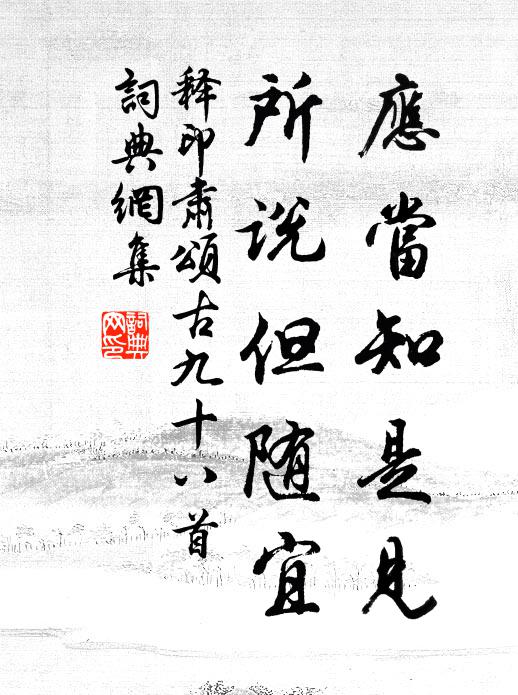 應當知是見
所说但随宜
释印肅頌古九十八首
詞典網集
詞典
网印